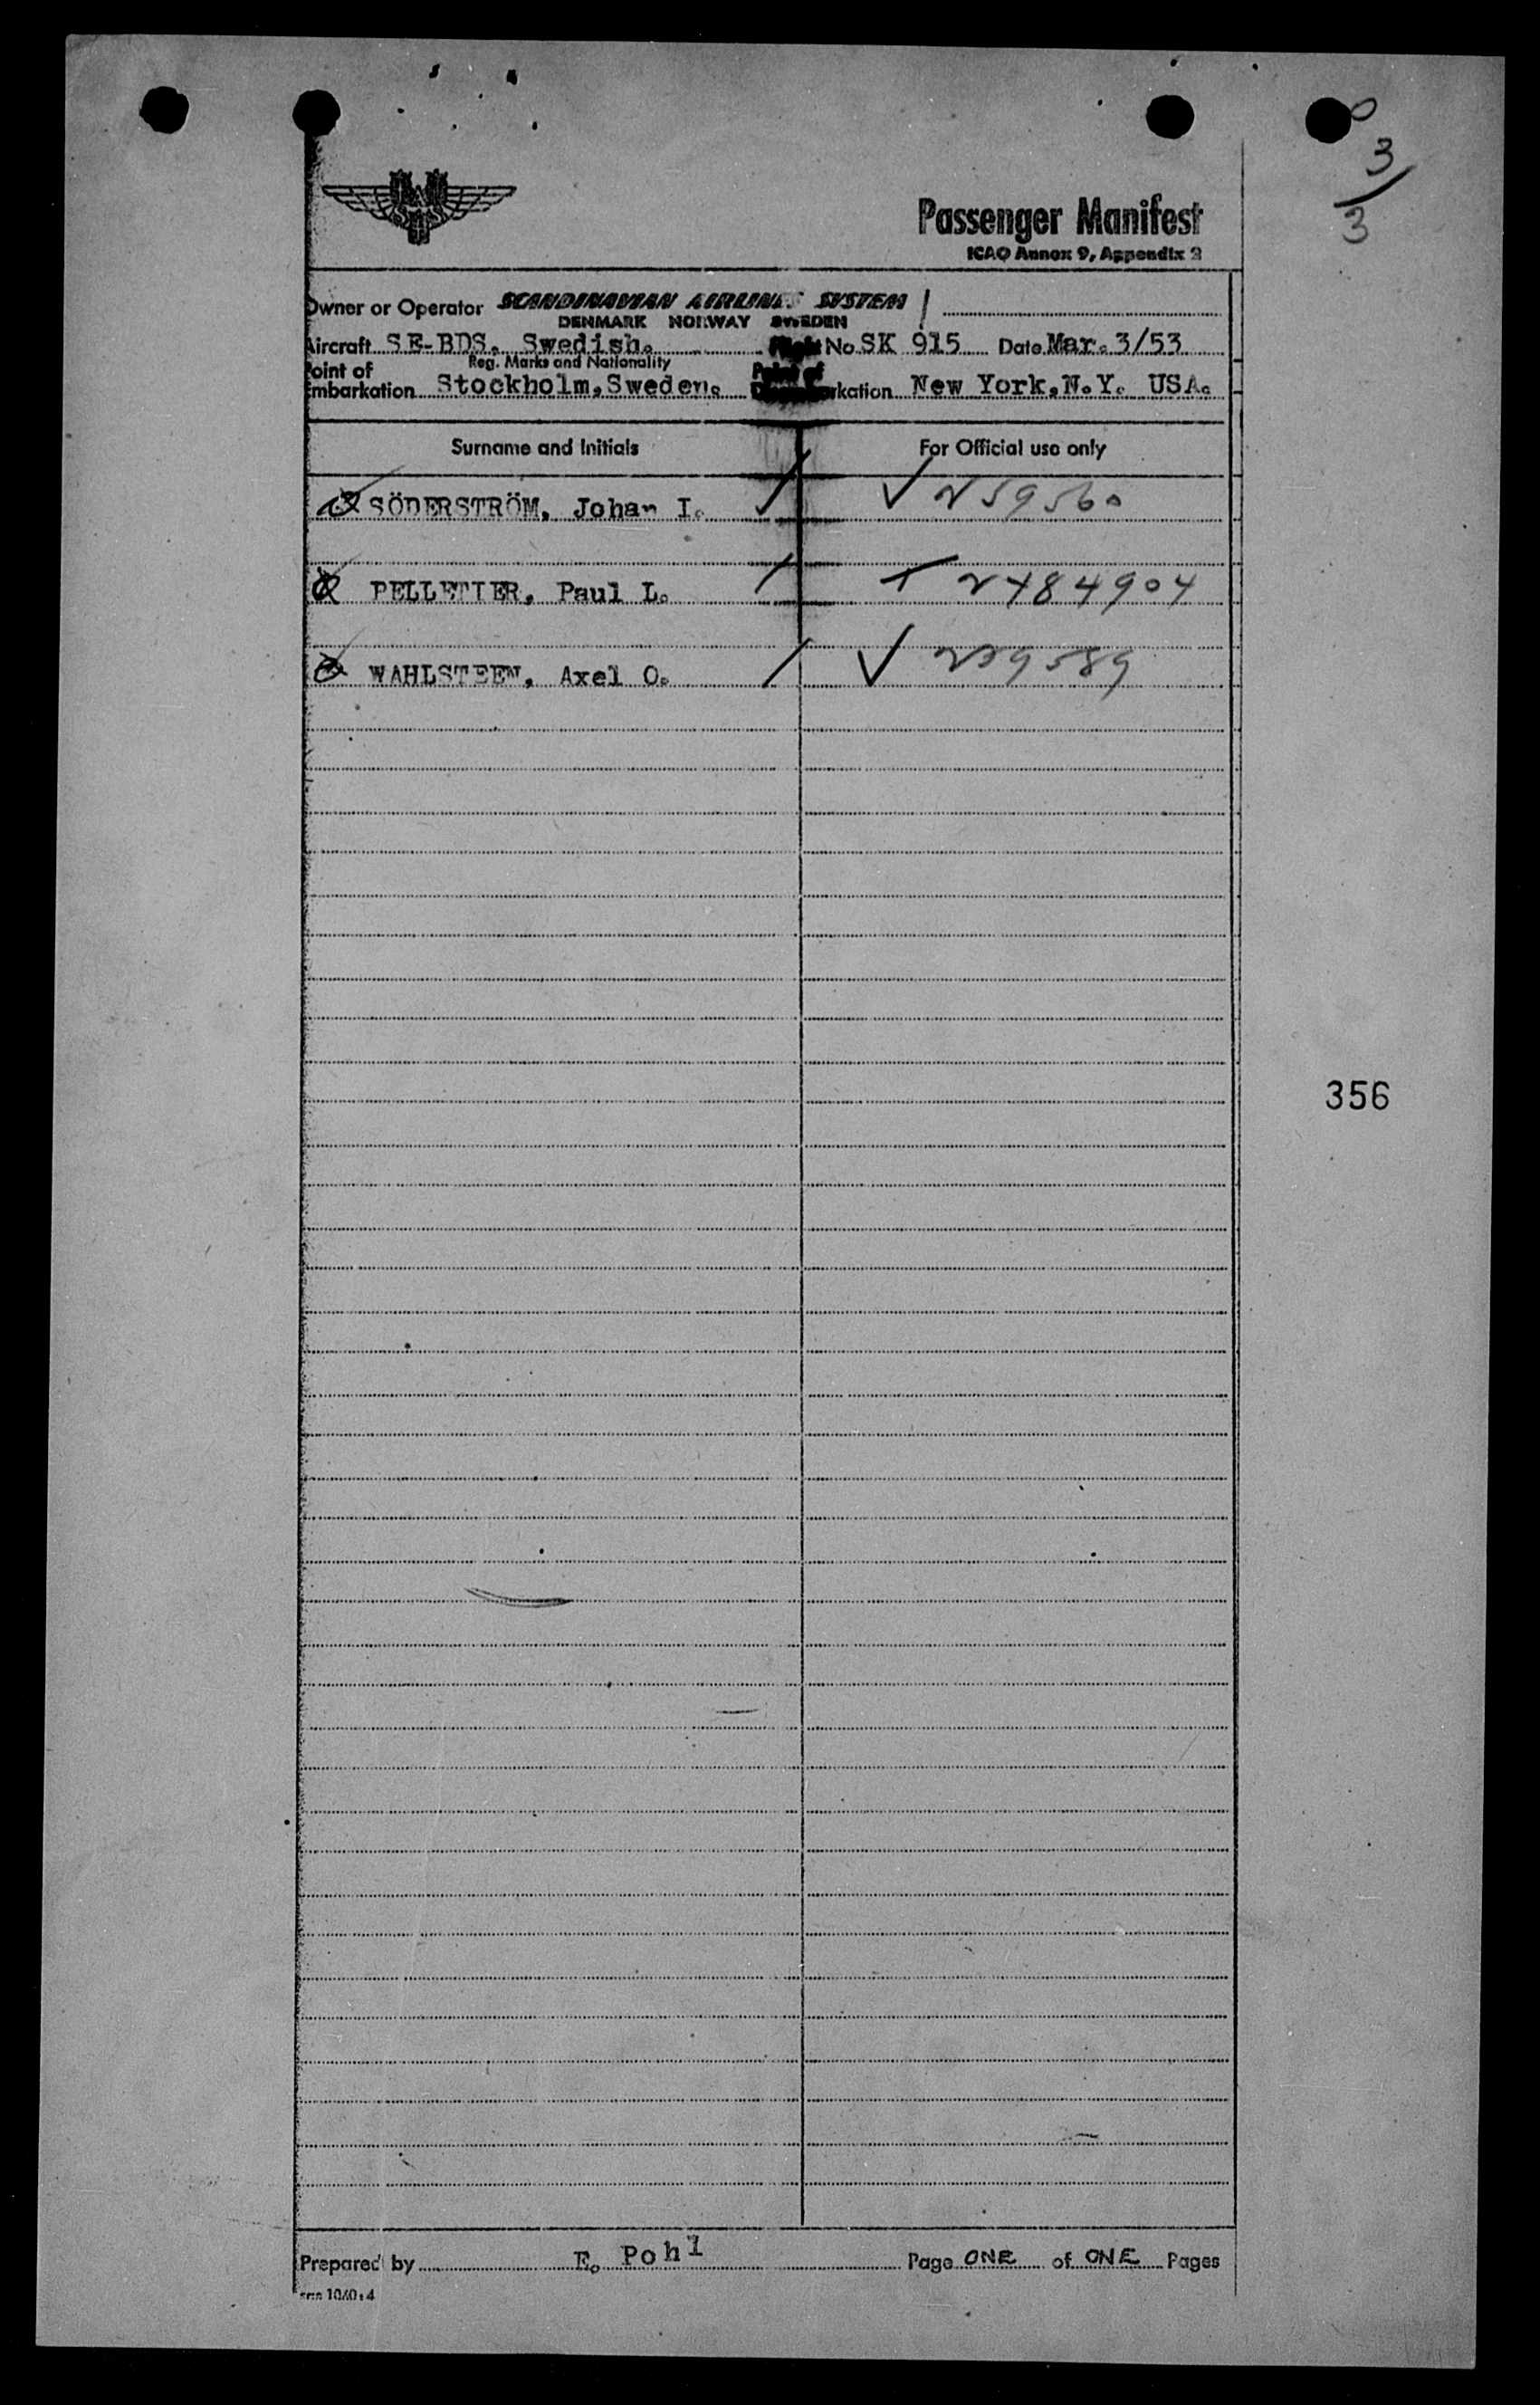 3/3
SAS
Passenger Manifest
ICAO Annex 9, Appendix 3
Owner or Operator SCANDINAVIAN AIRLINES SYSTEM
DENMARK NORWAY SWEDEN
Aircraft SE-BDS. Swedish. Flight No SK 915 Date Mar. 3/53
Reg. Marks and Nationality
Point of Embarkation Stockholm, Sweden. Point of Disembarkation New York, N.Y. USA.
Surname and Initials For Official use only
SÖDERSTRÖM, Johan I. ✓ 259560
PELLETIER, Paul L. 2484904
WAHLSTEEN, Axel O. ✓ 259589
356
Prepared by E. Pohl Page ONE of ONE Pages